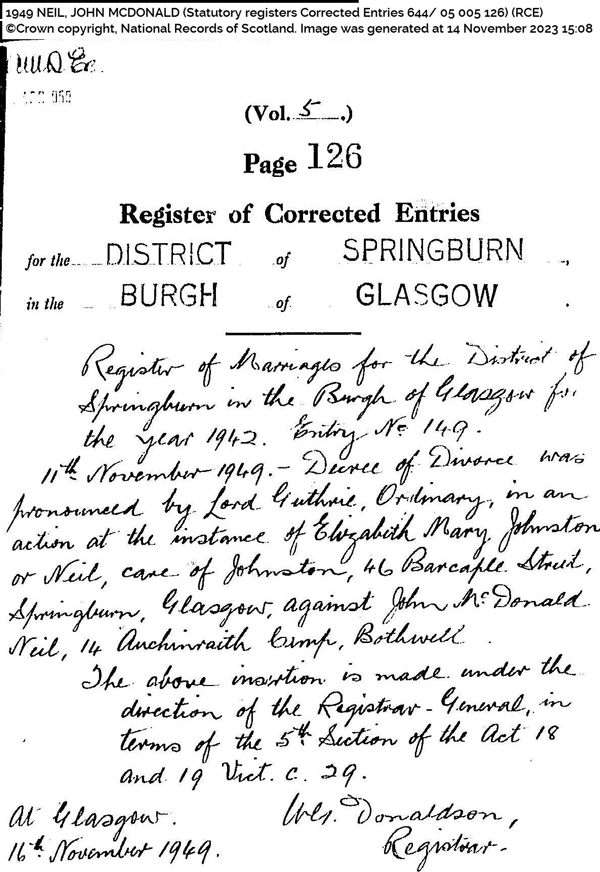 1949 NEIL, JOHN MCDONALD (Statutory registers Corrected Entries 644/ 05 005 126) (RCE)
©Crown copyright, National Records of Scotland. Image was generated at 14 November 2023 15:08
(Vol. 5 .)
Page 126
Register of Corrected Entries
for the DISTRICT of SPRINGBURN ,
in the BURGH of GLASGOW .
Register of Marriages for the District of
Springburn in the Burgh of Glasgow for
the year 1942. Entry No 149.
11th November 1949. - Decree of Divorce was
pronounced by Lord Guthrie, Ordinary, in an
action at the instance of Elizabeth Mary Johnston
or Neil, care of Johnston, 46 Barcaple Street,
Springburn, Glasgow, against John McDonald
Neil, 14 Auchinraith Camp, Bothwell.
The above insertion is made under the
direction of the Registrar-General, in
terms of the 5th Section of the Act 18
and 19 Vict. c. 29.
At Glasgow. Donaldson,
16th November 1949. Registrar.